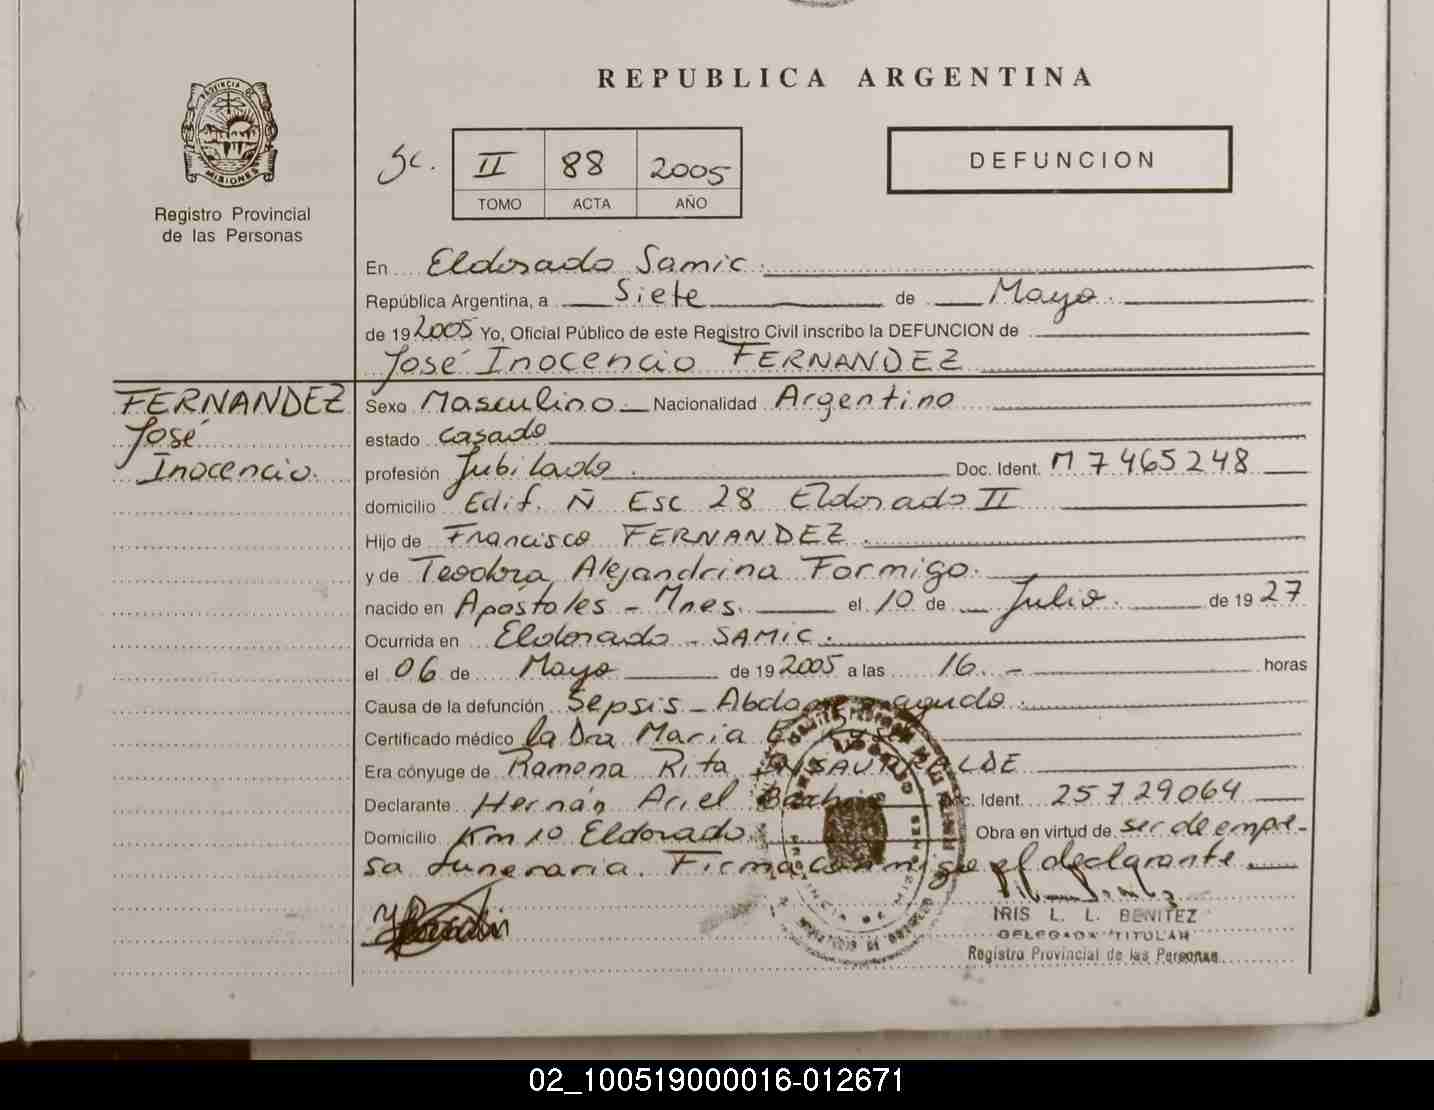 REPUBLICA ARGENTINA
PROVINCIA DE
MISIONES
Registro Provincial
de las Personas
Sc. II 88 2005
TOMO ACTA AÑO
DEFUNCION
En Eldorado Samic.
República Argentina, a Siete de Mayo
de 19 2005 Yo, Oficial Público de este Registro Civil inscribo la DEFUNCION de
José Inocencio FERNANDEZ
FERNANDEZ
José
Inocencio.
Sexo Masculino Nacionalidad Argentino
estado casado
profesión Jubilado. Doc. Ident. M 7465248
domicilio Edif. Ñ Esc 28 Eldorado II
Hijo de Francisco FERNANDEZ.
y de Teodora Alejandrina Formigo.
nacido en Apóstoles - Mnes. el 10 de Julio. de 19 27
Ocurrida en Eldorado - SAMIC.
el 06 de Mayo de 19 2005 a las 16.- horas
Causa de la defunción Sepsis - Abdomen agudo.
Certificado médico la Dra Maria
Era cónyuge de Ramona Rita INSAURRALDE
Declarante Hernán Ariel Doc. Ident. 25729064
Domicilio Km 10 Eldorado Obra en virtud de ser de empre-
sa funeraria. Firma conmigo el declarante.
IRIS L. L. BENITEZ
DELEGADA TITULAR
Registro Provincial de las Personas
02_100519000016-012671